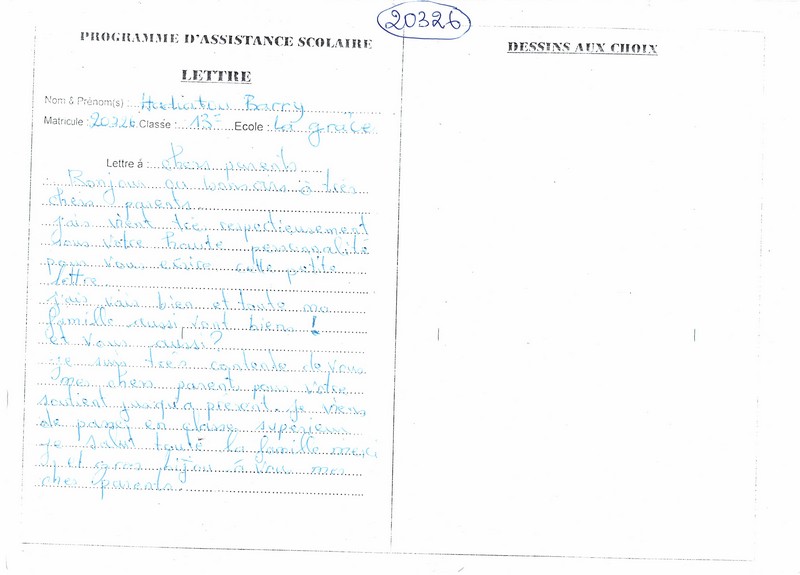 20326
PROGRAMME D'ASSISTANCE SCOLAIRE
LETTRE
Nom & Prénom(s) : Hadiatou Barry
Matricule : 20326 Classe : 13è Ecole : la grâce
Lettre á : chers parents
Bonjour ou bonsoir à très
chers parents.
j'ais vient très respectieusement
sous votre haute personnalité
pour vou ecrire cette petite
lettre.
j'ais vais bien et toute ma
famille aussi vont biens !
et vous aussi ?
je suis très contente de vous
mes chers parents pour votre
soutient jusqu'a present. je viens
de passez en classe supérieur
je salut toute la famille merci
et gros bijou à vou mes
chers parents.
DESSINS AUX CHOIX